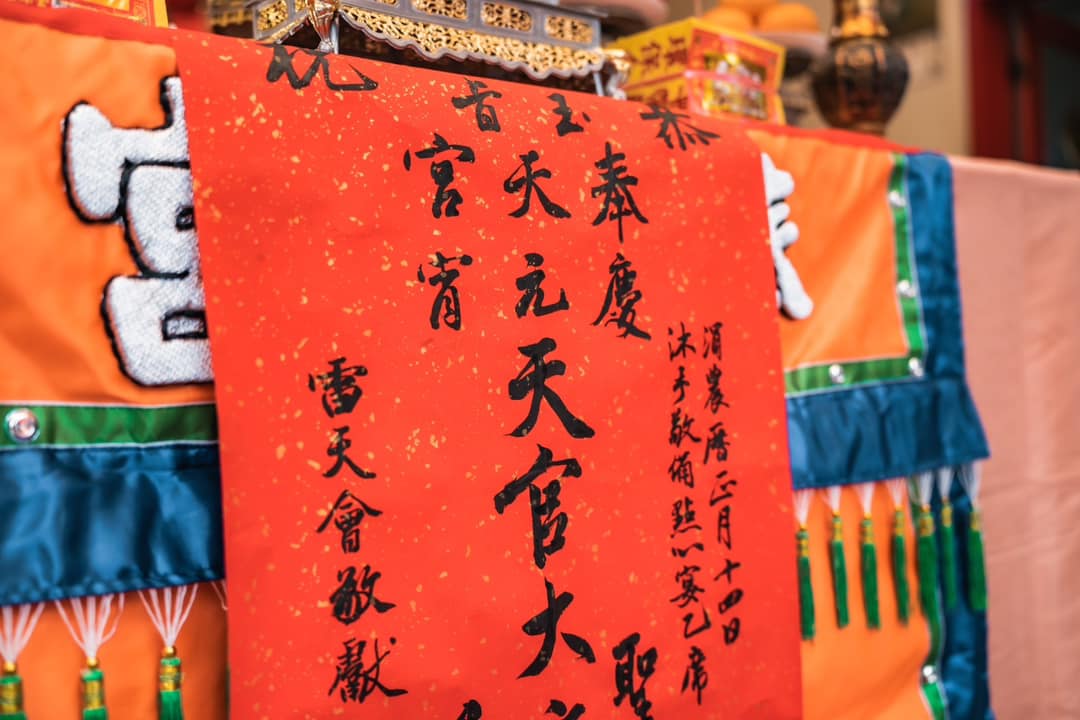 涓農曆正月十四日
沐手敬備點心宴乙席
恭
奉慶
聖
玉天元天官大
旨宮宵
祝
雷天會敬獻